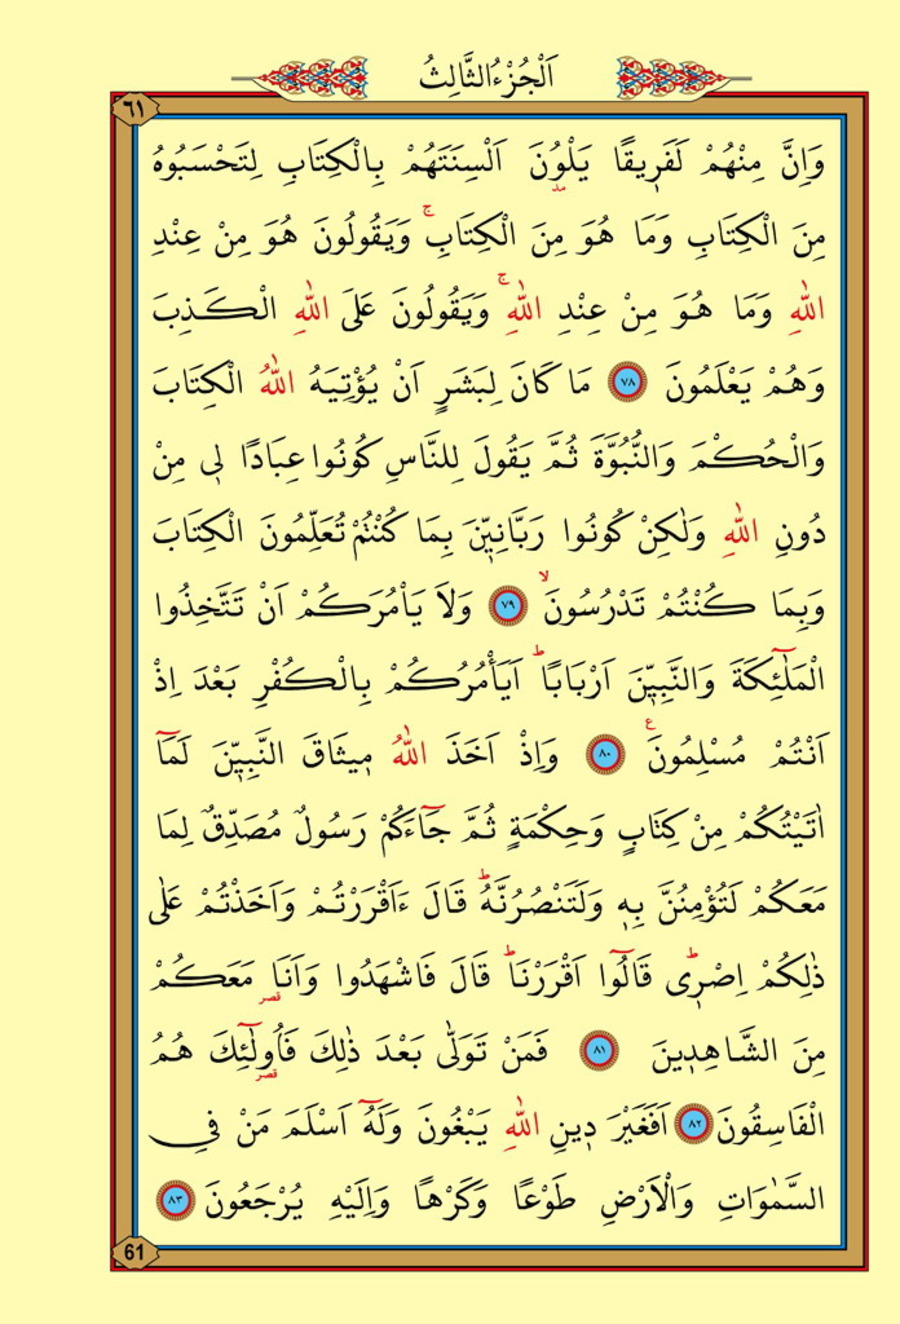 اَلْجُزْءُ الثَّالِثُ
٦١
وَاِنَّ مِنْهُمْ لَفَرٖيقًا يَلْوُ۫نَ اَلْسِنَتَهُمْ بِالْكِتَابِ لِتَحْسَبُوهُ
مِنَ الْكِتَابِ وَمَا هُوَ مِنَ الْكِتَابِۚ وَيَقُولُونَ هُوَ مِنْ عِنْدِ
اللّٰهِ وَمَا هُوَ مِنْ عِنْدِ اللّٰهِۚ وَيَقُولُونَ عَلَى اللّٰهِ الْكَذِبَ
وَهُمْ يَعْلَمُونَ ٧٨ مَا كَانَ لِبَشَرٍ اَنْ يُؤْتِيَهُ اللّٰهُ الْكِتَابَ
وَالْحُكْمَ وَالنُّبُوَّةَ ثُمَّ يَقُولَ لِلنَّاسِ كُونُوا عِبَادًا لٖي مِنْ
دُونِ اللّٰهِ وَلٰكِنْ كُونُوا رَبَّانِيّٖنَ بِمَا كُنْتُمْ تُعَلِّمُونَ الْكِتَابَ
وَبِمَا كُنْتُمْ تَدْرُسُونَۙ ٧٩ وَلَا يَاْمُرَكُمْ اَنْ تَتَّخِذُوا
الْمَلٰٓئِكَةَ وَالنَّبِيّٖنَ اَرْبَابًاؕ اَيَاْمُرُكُمْ بِالْكُفْرِ بَعْدَ اِذْ
اَنْتُمْ مُسْلِمُونَ ع ٨٠ وَاِذْ اَخَذَ اللّٰهُ مٖيثَاقَ النَّبِيّٖنَ لَمَٓا
اٰتَيْتُكُمْ مِنْ كِتَابٍ وَحِكْمَةٍ ثُمَّ جَٓاءَكُمْ رَسُولٌ مُصَدِّقٌ لِمَا
مَعَكُمْ لَتُؤْمِنُنَّ بِهٖ وَلَتَنْصُرُنَّهُؕ قَالَ ءَاَقْرَرْتُمْ وَاَخَذْتُمْ عَلٰى
ذٰلِكُمْ اِصْرٖيؕ قَالُٓوا اَقْرَرْنَاؕ قَالَ فَاشْهَدُوا وَاَنَا۬ مَعَكُمْ
مِنَ الشَّاهِدٖينَ ٨١ فَمَنْ تَوَلّٰى بَعْدَ ذٰلِكَ فَاُو۬لٰٓئِكَ هُمُ
الْفَاسِقُونَ ٨٢ اَفَغَيْرَ دٖينِ اللّٰهِ يَبْغُونَ وَلَهُٓ اَسْلَمَ مَنْ فِي
السَّمٰوَاتِ وَالْاَرْضِ طَوْعًا وَكَرْهًا وَاِلَيْهِ يُرْجَعُونَ ٨٣
61